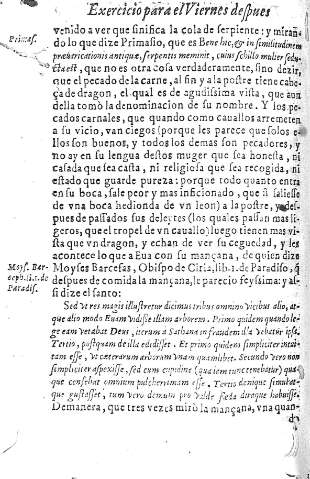 Exercicio para el Viernes despues
venido a ver que sinifica la cola de serpiente: y miran-
Primas.
do lo que dize Primasio, que es Bene hic, & in similitudinem
præuaricationis antiquæ, serpentis meminit, cuius sibillo mulier sedu-
cta est, que no es otra cosa verdaderamente, sino dezir,
que el pecado de la carne, al fin y a la postre tiene cabe-
ça de dragon, el qual es de agudissima vista, que aun
della tomò la denominacion de su nombre. Y los pe-
cados carnales, que quando como cauallos arremeten
a su vicio, van ciegos (porque les parece que solos e-
llos son buenos, y todos los demas son pecadores, y
no ay en su lengua destos muger que sea honesta, ni
casada que sea casta, ni religiosa que sea recogida, ni
estado que guarde pureza: porque todo quanto entra
en su boca, sale peor y mas inficionado, que si saliesse
de vna boca hedionda de vn leon) a la postre, y des-
pues de passados sus deleytes (los quales passan mas li-
geros, que el tropel de vn cauallo) luego tienen mas vi-
sta que vn dragon, y echan de ver su ceguedad, y les
acontece lo que a Eua con su mançana, de quien dize
Moyses Barcefas, Obispo de Ciria, lib. 1. de Paradiso, q̃
Moys. Bar
ceph. li. 1. de
Paradis.
despues de comida la mançana, le parecio feyssima: y as-
si dize el santo:
Sed vt res magis illustretur dicimus tribus omnino vicibus alio, at-
que alio modo Euam vidisse illam arborem. Primo quidem quando le-
ge eam vetabat Deus, iterum a Sathana in fraudem illa vehatur ipsa.
Tertio, postquam de illa edisset. Et primo quidem simpliciter intui-
tam esse, vt cæterarum arborum vnam quamlibet. Secundo vero non
simpliciter aspexisse, sed cum cupidine (qua iam tunc tenebatur) qua-
que censebat omnium pulcherrimam esse. Tertio denique simulat-
que gustasset, tum vero demum pro valde fœda
Demanera, que tres vezes mirò la mançana, vna quan-
do